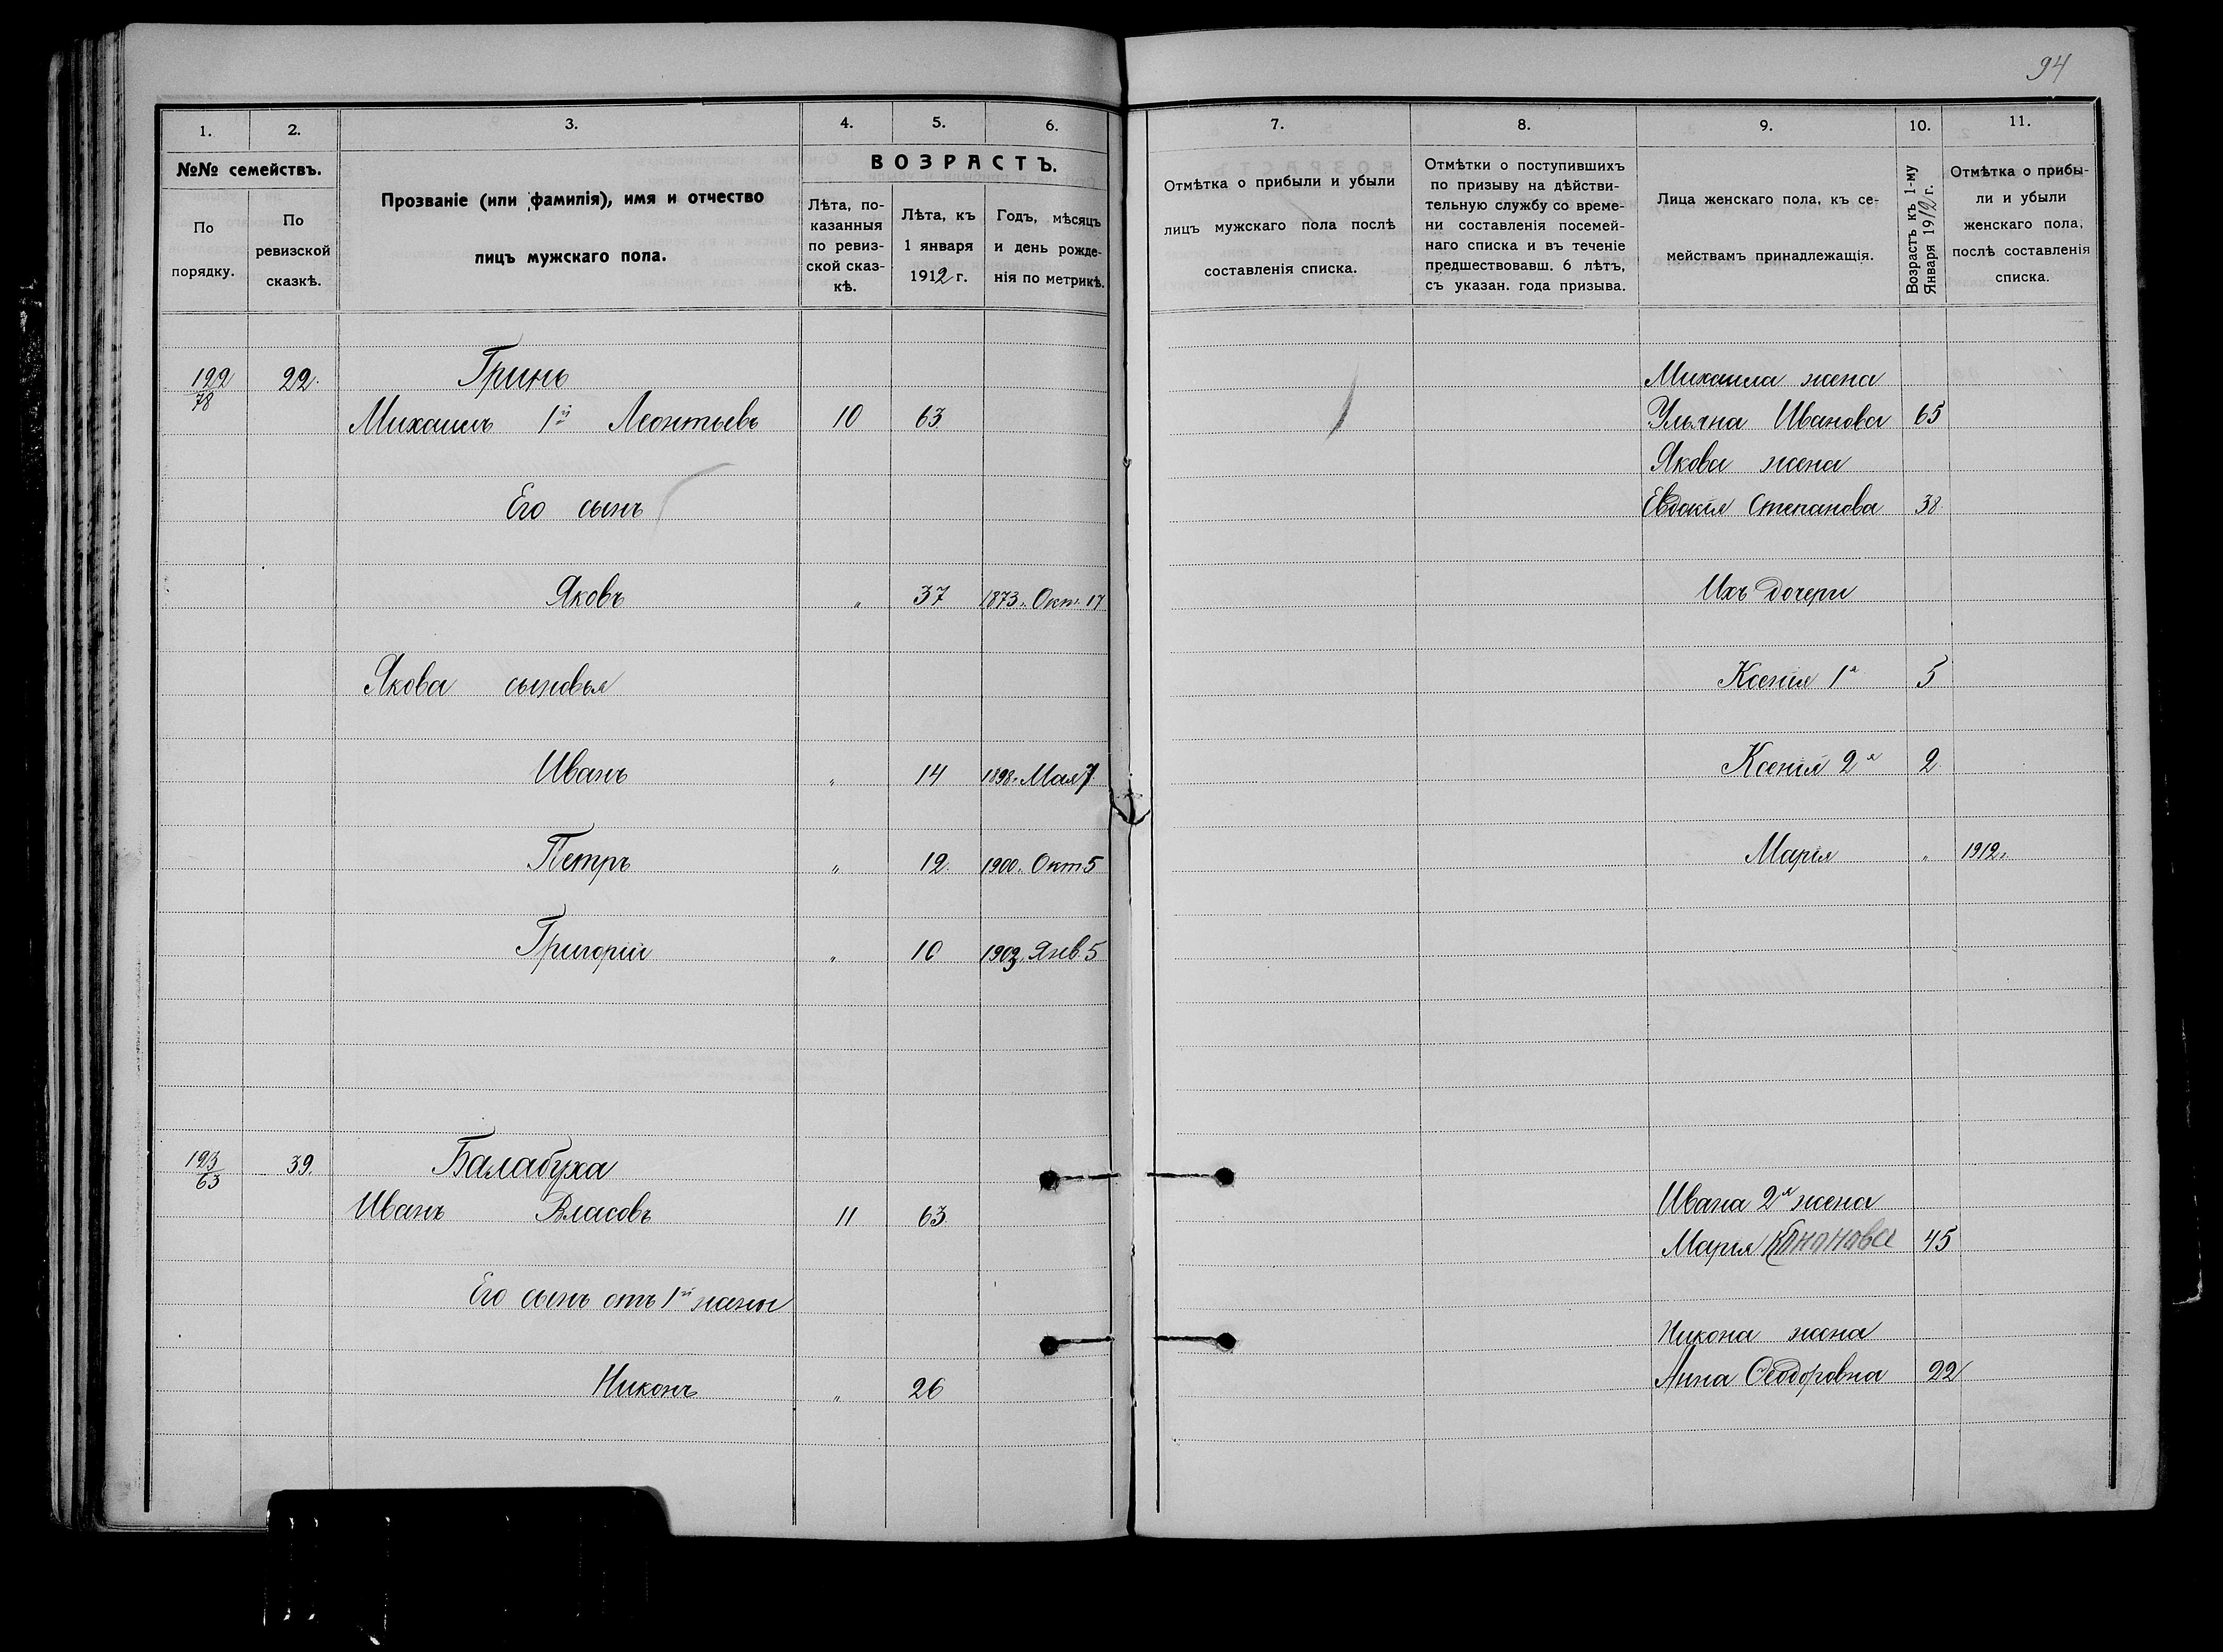 94
1. 2. 3. 4. 5. 6.
№№ семействъ.
По порядку.
По ревизской сказкѣ.
Прозваніе (или фамилія), имя и отчество
лицъ мужскаго пола.
ВОЗРАСТЪ.
Лѣта, по-
казанныя
по ревиз-
ской сказ-
кѣ.
Лѣта, къ
1 января
1912 г.
Годъ, мѣсяцъ
и день рожде-
нія по метрикѣ.
122/78 22. Гринь
Михаилъ 1й Леонтьевъ 10 63
Его сынъ
Яковъ " 37 1873 г. Окт. 17
Якова сыновья
Иванъ " 14 1898 г. Мая 7
Петръ " 12 1900 г. Окт 5
Григорій " 10 1902 г. Янв. 5
123/63 39. Балабуха
Иванъ Власовъ 11 63
Его сынъ отъ 1й жены
Никонъ " 26
7. 8. 9. 10. 11.
Отмѣтка о прибыли и убыли
лицъ мужскаго пола послѣ
составленія списка.
Отмѣтки о поступившихъ
по призыву на дѣйстви-
тельную службу со време-
ни составленія посемей-
наго списка и въ теченіе
предшествовавш. 6 лѣтъ,
съ указан. года призыва.
Лица женскаго пола, къ се-
мействамъ принадлежащія.
Возрастъ къ 1-му
Января 1912 г.
Отмѣтка о прибы-
ли и убыли
женскаго пола,
послѣ составленія
списка.
Михаила жена
Ульяна Иванова 65
Якова жена
Евдокія Степанова 38
Ихъ дочери
Ксенія 1я 5
Ксенія 2я 2
Марія " 1912 г.
Ивана 2я жена
Марія Кононова 45
Никона жена
Анна Ѳеодоровна 22